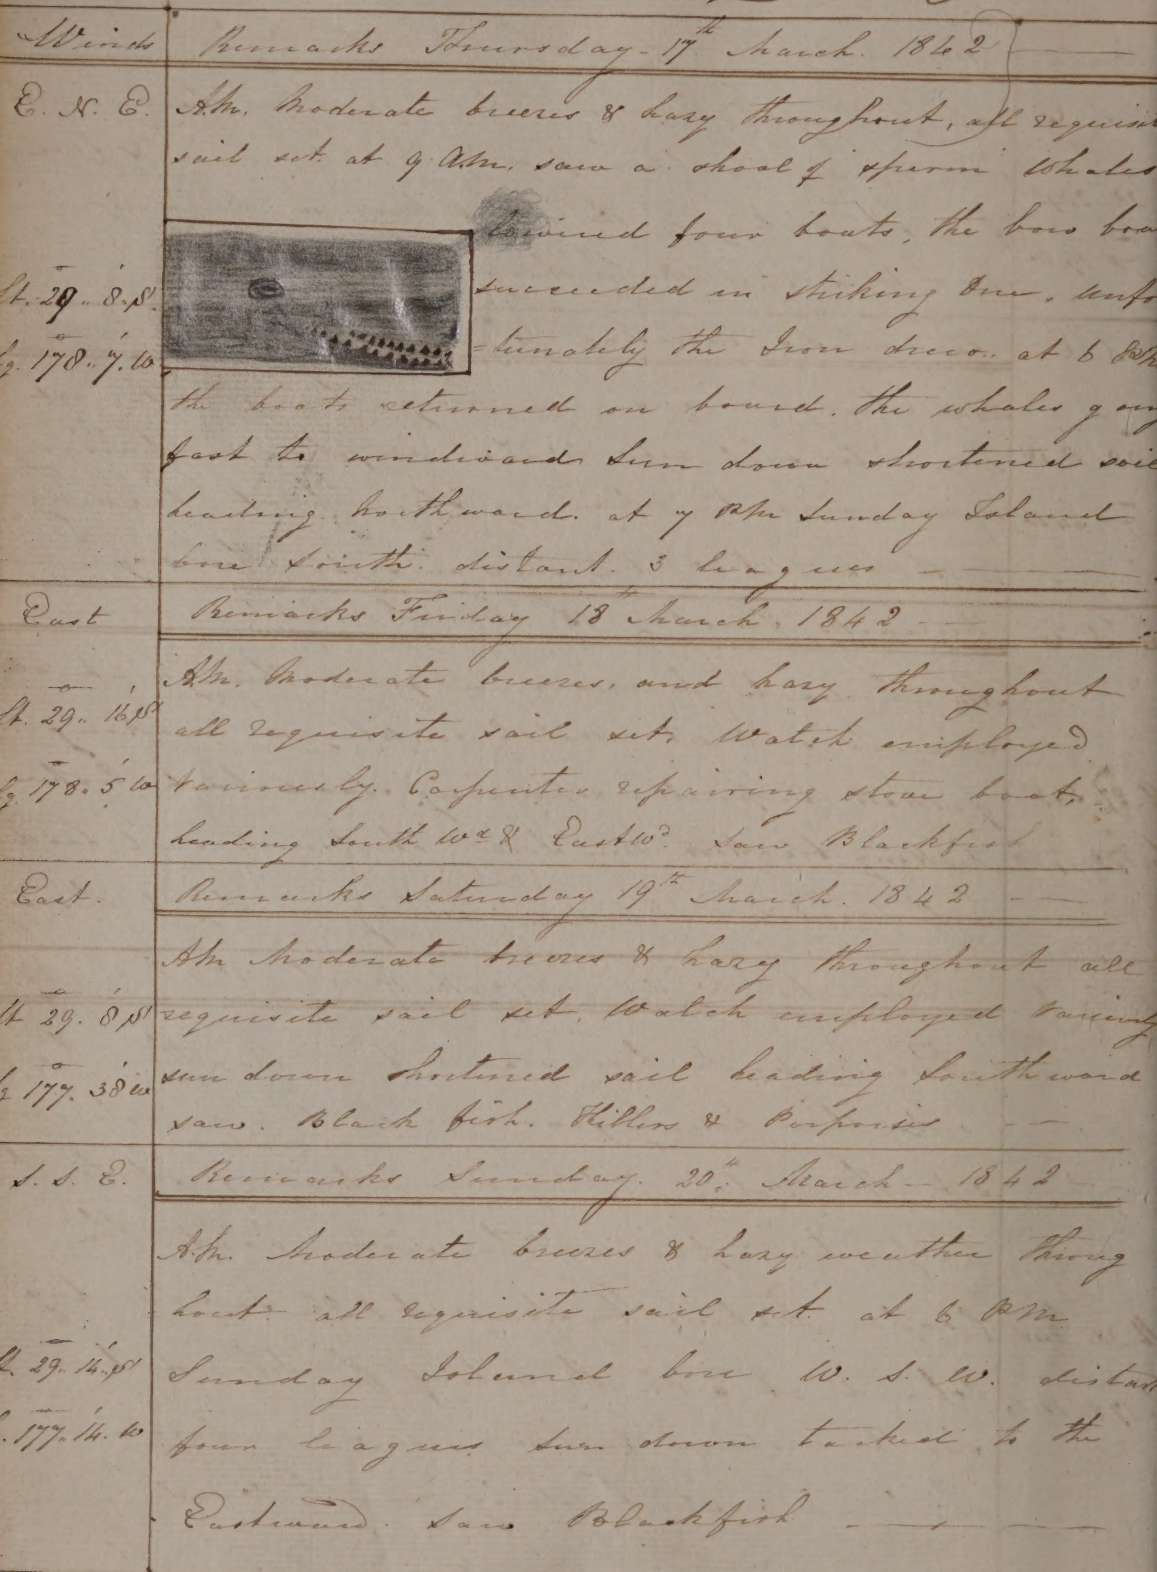 Winds Remarks Thursday - 17th March. 1842
E. N. E. A.M. Moderate breezes & hazy throughout, all requisit
sail set. at 9 A.M. saw a shoal of sperm Whales
lowered four boats, the bow boa
Lt. 29 .. 8 .. S succeeded in striking One. unfo
Lg. 178 .. 7. W =tunately the Iron drew. at 6 P.M
the boats returned on board. the whales going
fast to windward Sun down shortened sail
heading Northward. at 7 PM Sunday Island
bore South. distant. 3 leagues
East Remarks Friday 18th March. 1842
A.M. Moderate breezes. and hazy throughout
Lt. 29 .. 16 S all requisite sail set. Watch employed
Lg. 178 .. 5 W variously. Carpenter repairing stove boat.
heading South Wd & East Wd. saw Blackfish
East. Remarks Saturday 19th March. 1842
AM Moderate breezes & hazy throughout all
Lt 29. 8 S requisite sail set. Watch employed variously
Lg 177. 38 W sun down shortened sail heading Southward
saw. Black fish. Killers & Porpoises
S. S. E. Remarks Sunday. 20th March - 1842
A.M. Moderate breezes & hazy weather throug
hout. all requisite sail set. at 6 PM.
Lt. 29 .. 14 .. S Sunday Island bore W. S. W. distant
. 177 .. 14. W four leagues sun down tacked to the
Eastward. saw Blackfish